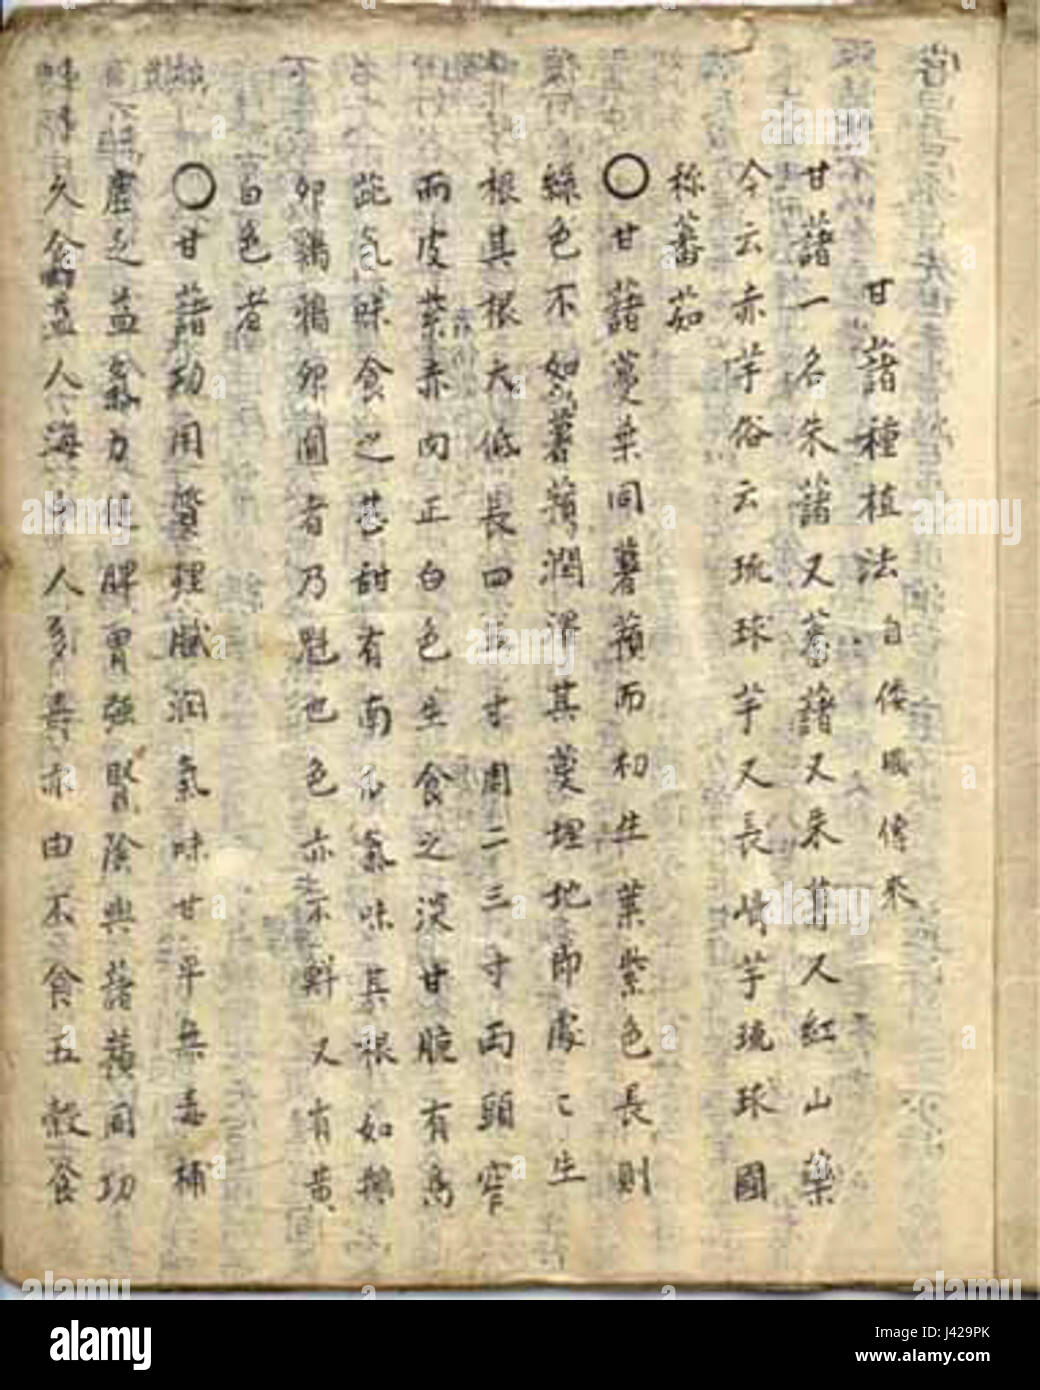 甘藷種植法 自倭國傳來
甘藷一名朱藷又蕃藷又朱薯又紅山藥
今云赤芋俗云琉球芋又長崎芋琉球國
称蕃茄
〇甘藷蔓葉同薯蕷而初生葉紫色長則
綠色不如薯蕷潤澤其蔓埋地即處々生
根其根大低長四五寸周二三寸両頭窄
而皮紫赤肉正白色生食之淡甘脆有
氣味食之甚甜有南瓜氣味其根如鵝
卵鷄鴉卵圓者乃魁也色亦不鮮又有黄
白色者
〇甘藷功用 理膩润氣味甘平無毒補
虛乏益氣力健脾胃強腎陰與藷蕷同功
久食益人海中人多壽亦由不食五穀食
alamy
J429PK
www.alamy.com